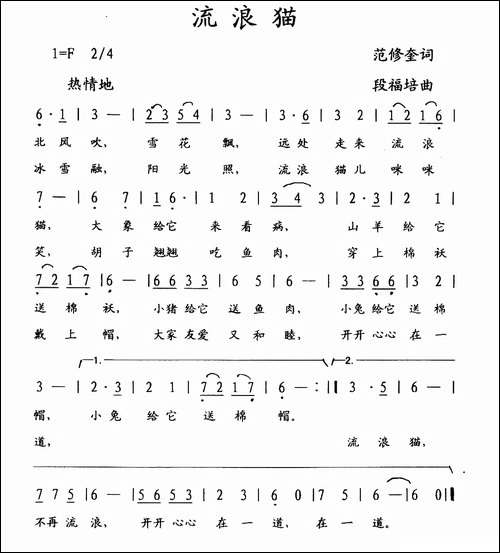 流浪猫
1=F 2/4 范修奎词
热情地 段福培曲
6·1 | 3 — | 2 3 5 4 | 3 — | 3·6 | 3 2 | 1 2 1 6 |
北风吹， 雪花飘， 远处走来流浪
冰雪融， 阳光照， 流浪猫儿咪咪
7 — | 6 7 | 1 6· | 1 2 | 3 4 3 | 2·3 | 2 1 |
猫， 大象给它来看病， 山羊给它
笑， 胡子翘翘吃鱼肉， 穿上棉袄
7 2 1 7 | 6 — | 6 6 3 3 | 6 5 | 6 — | 3 3 6 6 | 3 2 |
送棉袄， 小猪给它送鱼肉， 小兔给它送棉
戴上帽， 大家友爱又和睦， 开开心心在一
1. 2.
3 — | 2·3 | 2 1 | 7 2 1 7 | 6 — :‖ 3·5 | 6 — |
帽， 小兔给它送棉帽。
道， 流浪猫，
7 7 5 | 6 — | 5 6 5 3 | 2 3 | 6 0 | 7 5 | 6 — | 6 0 ‖
不再流浪， 开开心心在一道， 在一道。